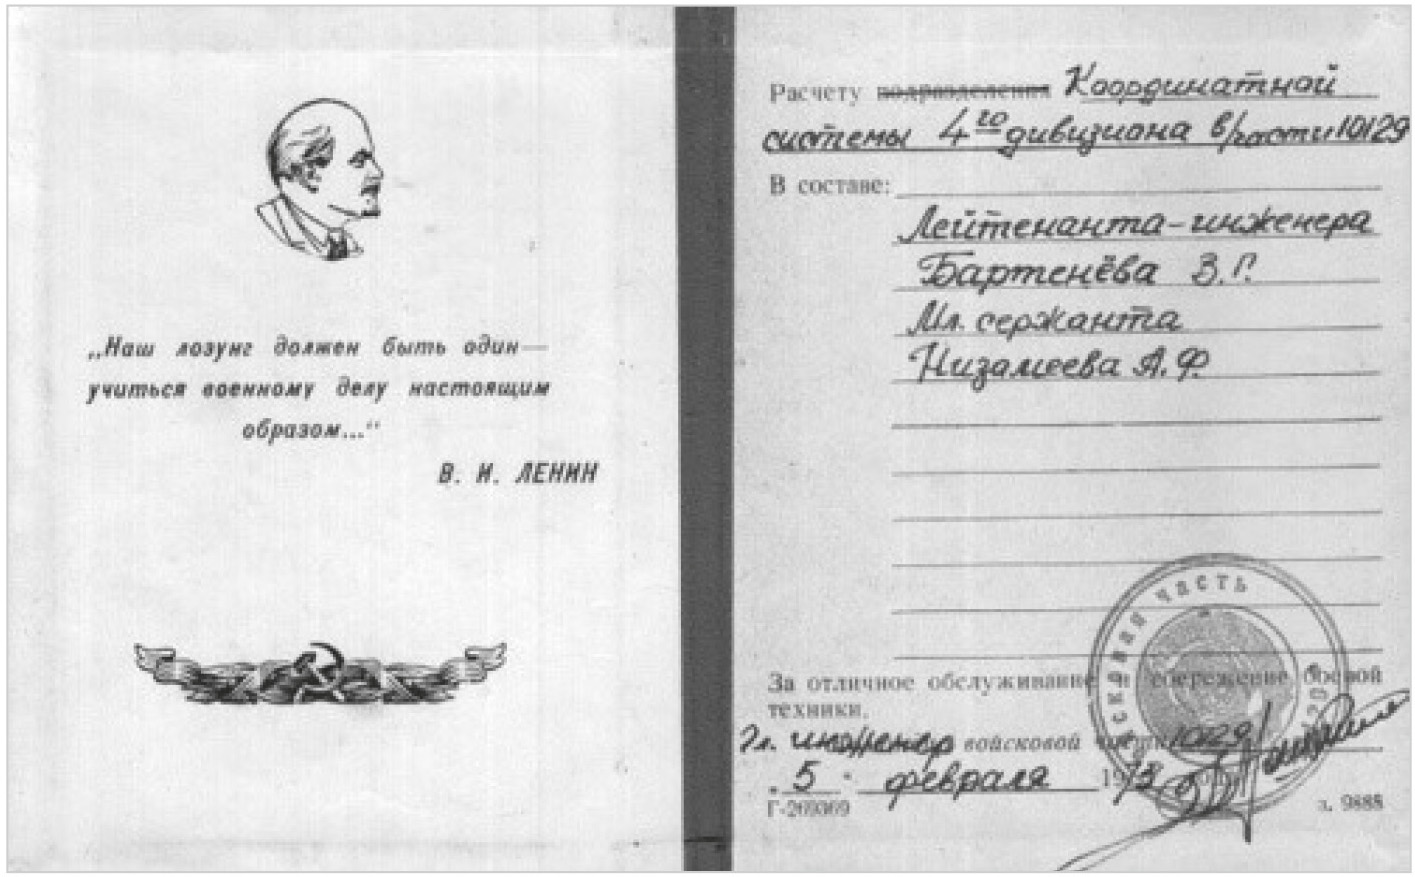 „Наш лозунг должен быть один—
учиться военному делу настоящим
образом...“
В. И. ЛЕНИН
Расчету подразделения Координатной
системы 4го дивизиона в/части 10129
В составе:
Лейтенанта-инженера
Бартенёва В.Г.
Мл. сержанта
Низамеева А.Ф.
За отличное обслуживание и сбережение боевой
техники.
Гл. инженер войсковой части 10129
„5“ февраля 19
Г-269369
з. 9888
ЧАСТЬ